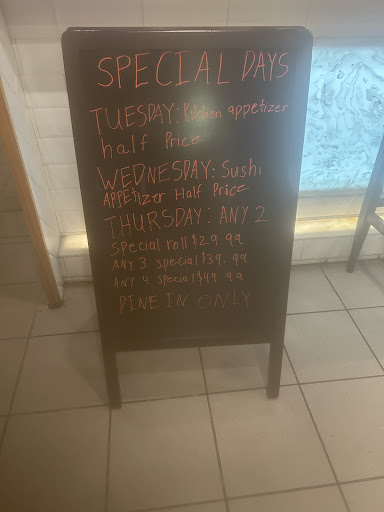 SPECIAL DAYS
TUESDAY: Kitchen appetizer
half Price
WEDNESDAY: Sushi
APPEtizer Half Price
THURSDAY: ANY 2
Special roll $29.99
ANY 3 special $39.99
ANY 4 special $49 99
DINE IN ONLY